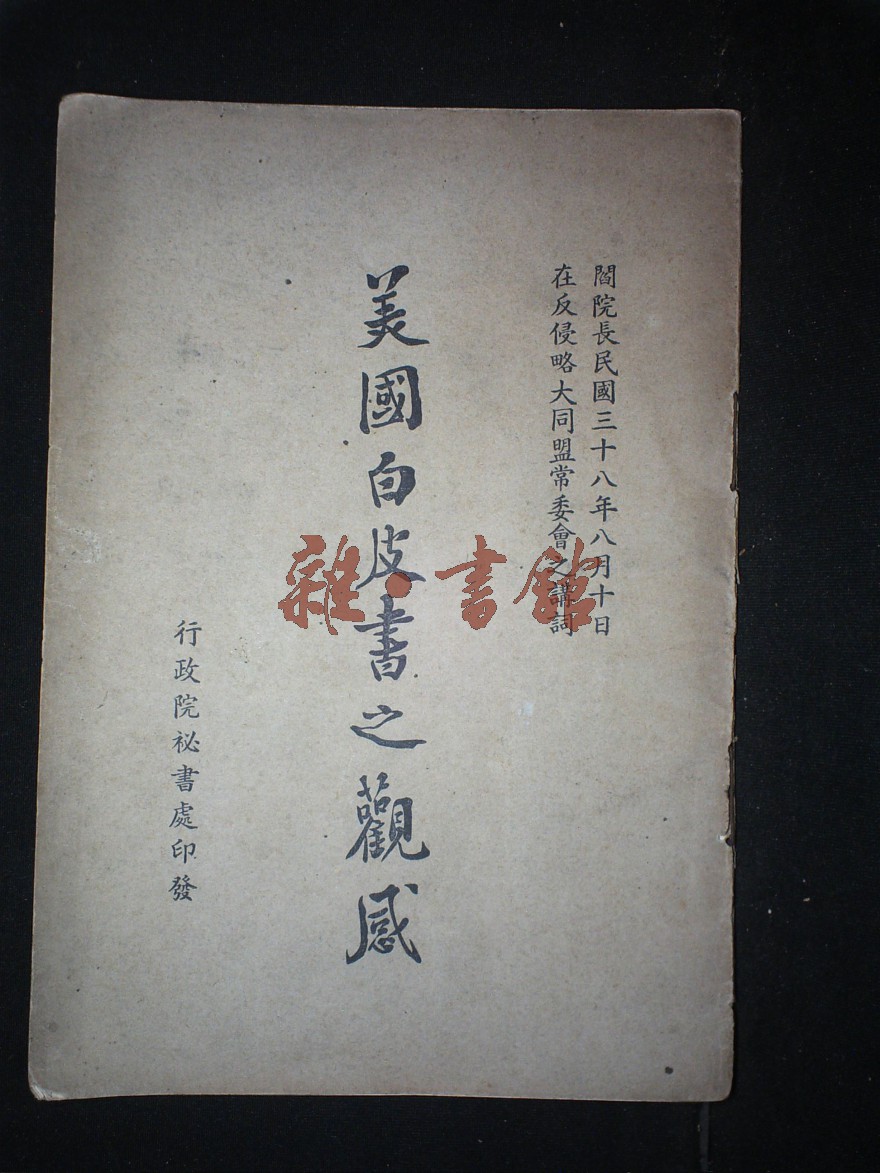 閻院長民國三十八年八月十日
在反侵略大同盟常委會之講詞
美國白皮書之觀感
行政院祕書處印發
雜·書館